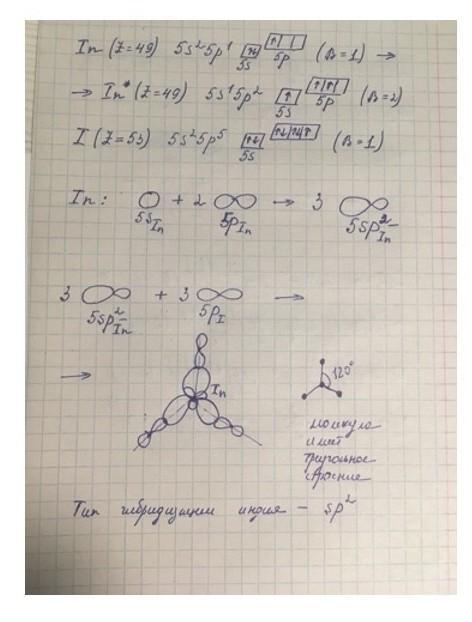 In (Z=49) 5s² 5p¹ 5s 5p (B=1) →
→ In* (Z=49) 5s¹ 5p² 5s 5p (B=2)
I (Z=53) 5s² 5p⁵ 5s (B=1)
In: 5s In + 2 5p In → 3 5sp² In
3 5sp² In + 3 5p I →
→ In 120°
молекула
имеет
треугольное
строение
Тип гибридизации индия – sp²